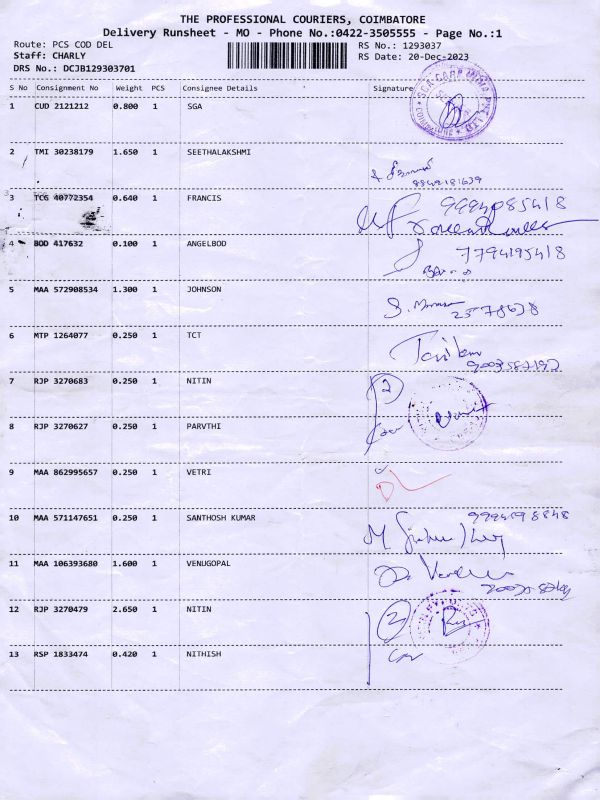 THE PROFESSIONAL COURIERS, COIMBATORE
Delivery Runsheet - MO - Phone No.:0422-3505555 - Page No.:1
Route: PCS COD DEL
RS No.: 1293037
Staff: CHARLY
RS Date: 20-Dec-2023
DRS No.: DCJB129303701
S No Consignment No Weight PCS Consignee Details Signature
1 CUD 2121212 0.800 1 SGA
2 TMI 30238179 1.650 1 SEETHALAKSHMI
3 TCG 40772354 0.640 1 FRANCIS
9994085418
4 BOD 417632 0.100 1 ANGELBOD
7794195418
5 MAA 572908534 1.300 1 JOHNSON
6 MTP 1264077 0.250 1 TCT
7 RJP 3270683 0.250 1 NITIN
2
8 RJP 3270627 0.250 1 PARVTHI
9 MAA 862995657 0.250 1 VETRI
10 MAA 571147651 0.250 1 SANTHOSH KUMAR
11 MAA 106393680 1.600 1 VENUGOPAL
12 RJP 3270479 2.650 1 NITIN
2
13 RSP 1833474 0.420 1 NITHISH